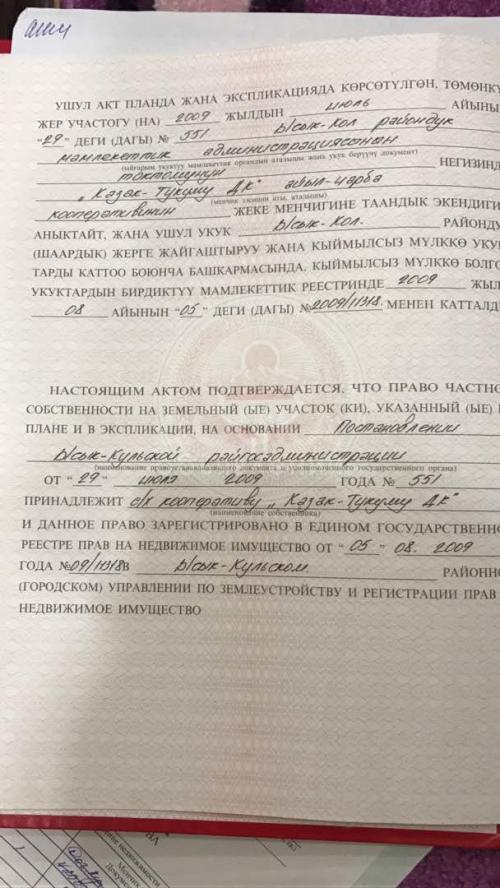 УШУЛ АКТ ПЛАНДА ЖАНА ЭКСПЛИКАЦИЯДА КӨРСӨТҮЛГӨН, ТӨМӨНКҮ
ЖЕР УЧАСТОГУ (НА) 2009 ЖЫЛДЫН июль АЙЫНЫ
"29" ДЕГИ (ДАГЫ) № 551 Ысык-Кол райондук
мамлекеттик администрациясынын
(ыйгарым укуктуу мамлекеттик органдын аталышы жана укук берүүчү документ)
токтомунун НЕГИЗИНД
"Казак-Тукуму ДК" айыл-чарба
(менчик ээсинин аты, аталышы)
кооперативинин ЖЕКЕ МЕНЧИГИНЕ ТААНДЫК ЭКЕНДИГИ
АНЫКТАЙТ, ЖАНА УШУЛ УКУК Ысык-Кол. РАЙОНДУ
(ШААРДЫК) ЖЕРГЕ ЖАЙГАШТЫРУУ ЖАНА КЫЙМЫЛСЫЗ МҮЛККӨ УКУ
ТАРДЫ КАТТОО БОЮНЧА БАШКАРМАСЫНДА, КЫЙМЫЛСЫЗ МҮЛККӨ БОЛГО
УКУКТАРДЫН БИРДИКТҮҮ МАМЛЕКЕТТИК РЕЕСТРИНДЕ 2009 ЖЫЛ
08 АЙЫНЫН "05" ДЕГИ (ДАГЫ) №2009/11318. МЕНЕН КАТТАЛД
НАСТОЯЩИМ АКТОМ ПОДТВЕРЖДАЕТСЯ, ЧТО ПРАВО ЧАСТНО
СОБСТВЕННОСТИ НА ЗЕМЕЛЬНЫЙ (ЫЕ) УЧАСТОК (КИ), УКАЗАННЫЙ (ЫЕ)
ПЛАНЕ И В ЭКСПЛИКАЦИИ, НА ОСНОВАНИИ Постановлении
Ысык-Кульской райгосадминистрации
(наименование правоустанавливающего документа и уполномоченного государственного органа)
ОТ "29" июля 2009 ГОДА № 551
ПРИНАДЛЕЖИТ с/х кооперативу "Казак-Тукуму ДК"
(наименование собственника)
И ДАННОЕ ПРАВО ЗАРЕГИСТРИРОВАНО В ЕДИНОМ ГОСУДАРСТВЕННО
РЕЕСТРЕ ПРАВ НА НЕДВИЖИМОЕ ИМУЩЕСТВО ОТ "05" 08. 2009
ГОДА №09/11318В Ысык-Кульском. РАЙОННО
(ГОРОДСКОМ) УПРАВЛЕНИИ ПО ЗЕМЛЕУСТРОЙСТВУ И РЕГИСТРАЦИИ ПРАВ
НЕДВИЖИМОЕ ИМУЩЕСТВО